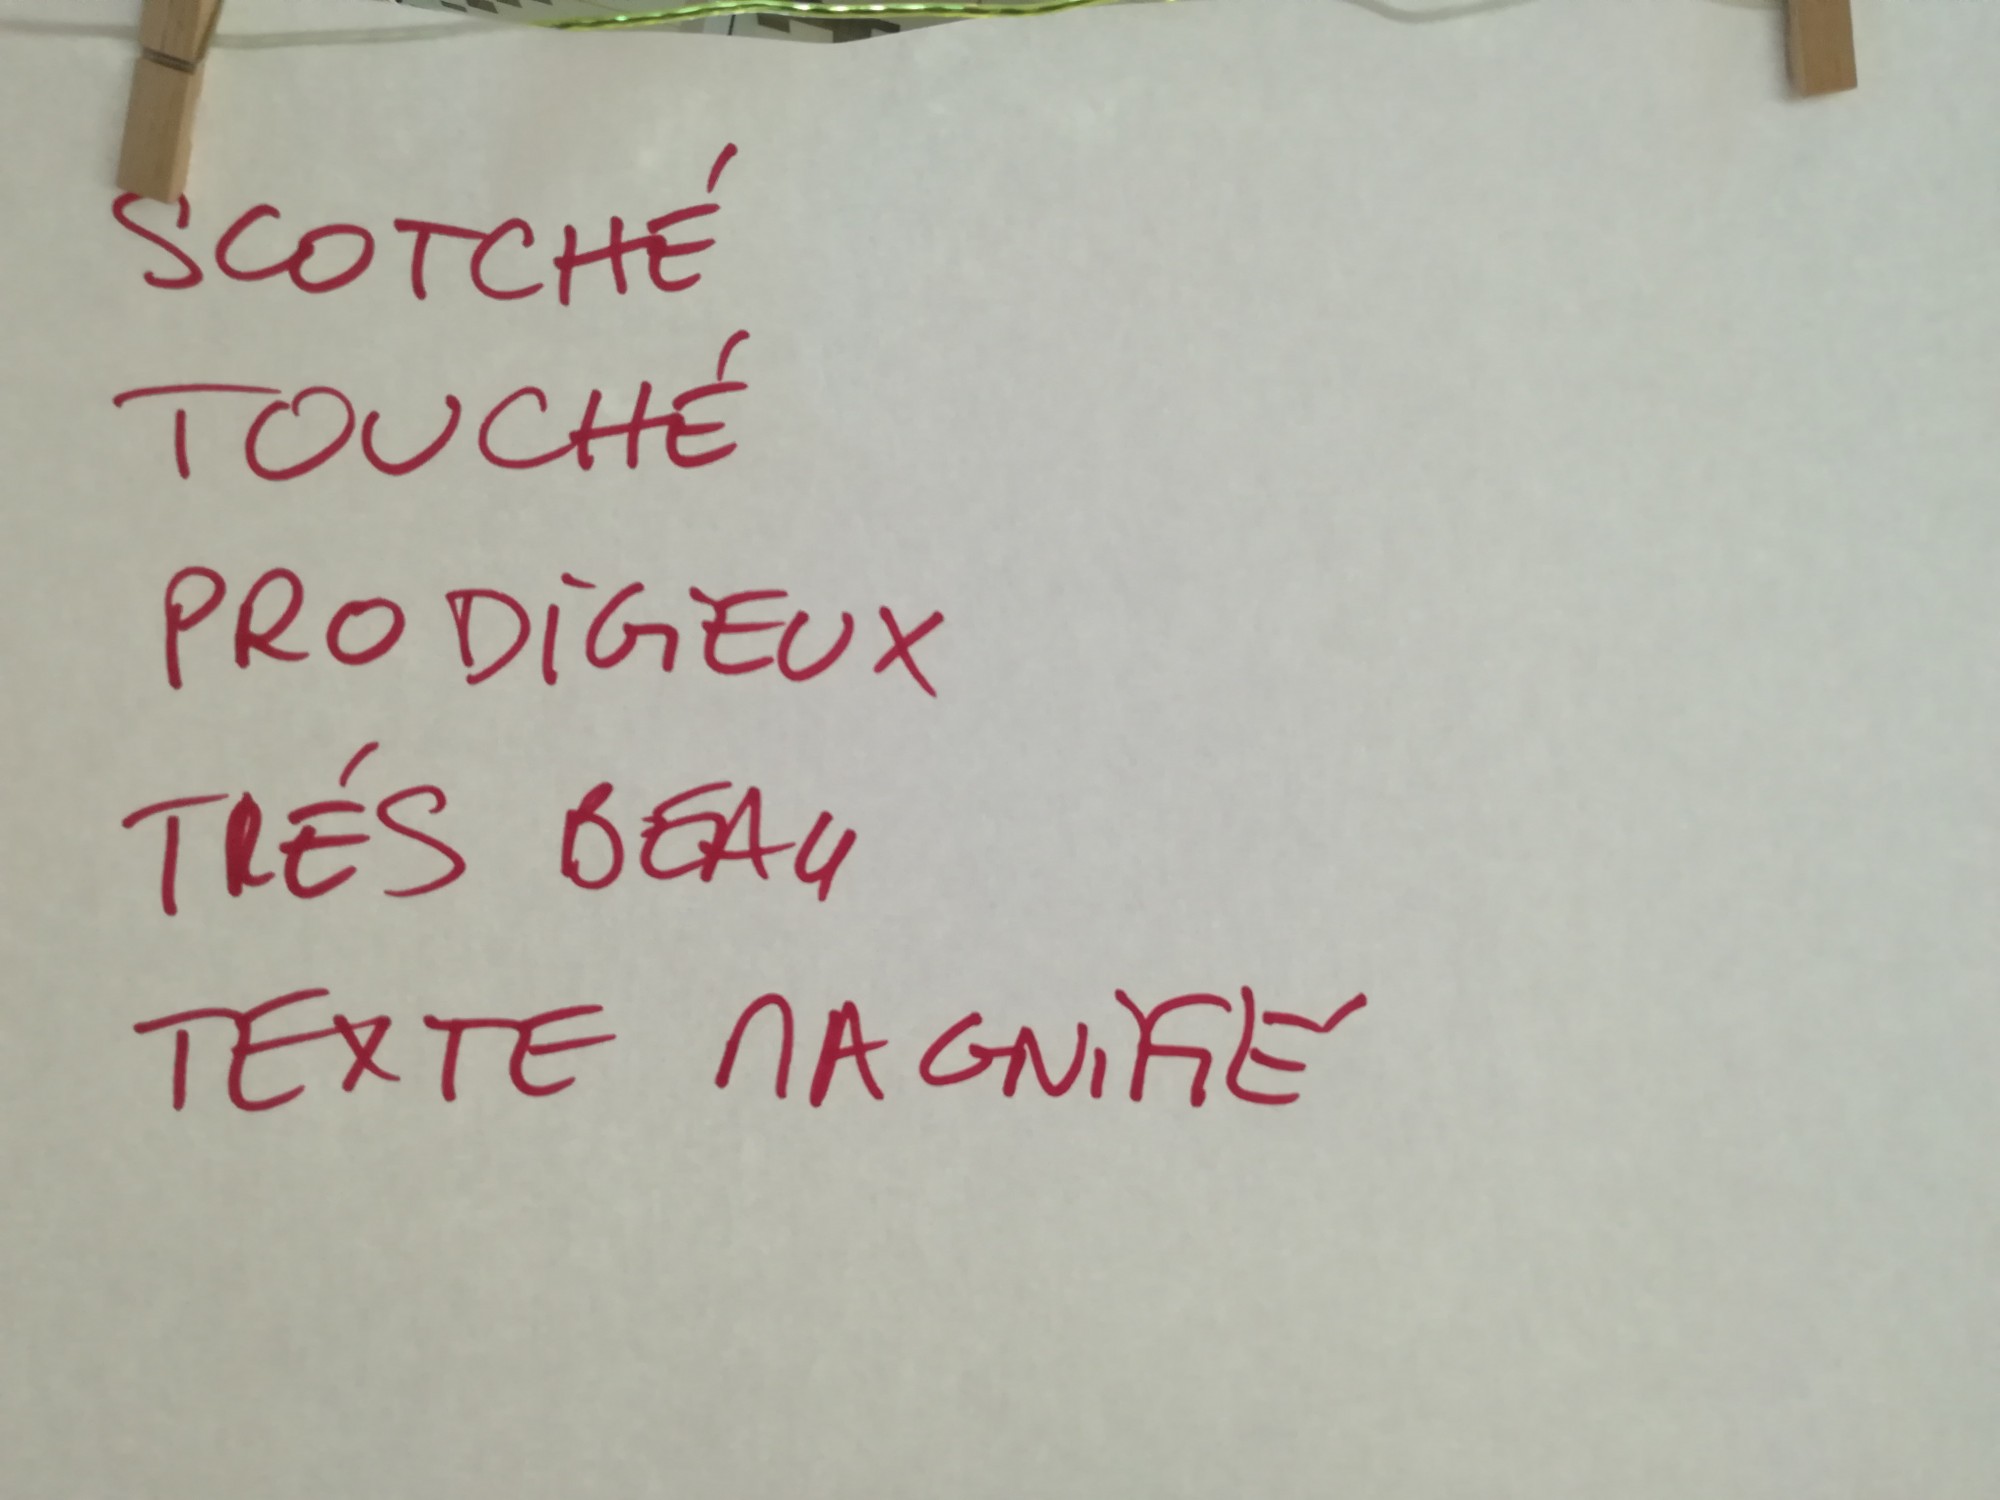 SCOTCHÉ
TOUCHÉ
PRODIGIEUX
TRÉS BEAU
TEXTE MAGNIFIÉ